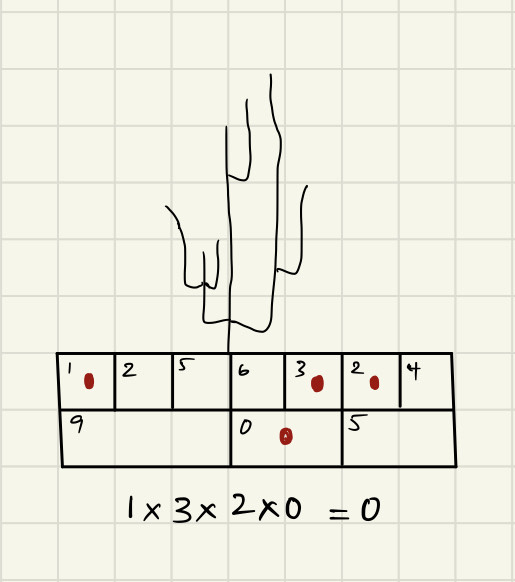 1 2 5 6 3 2 4
9 0 5
1 x 3 x 2 x 0 = 0